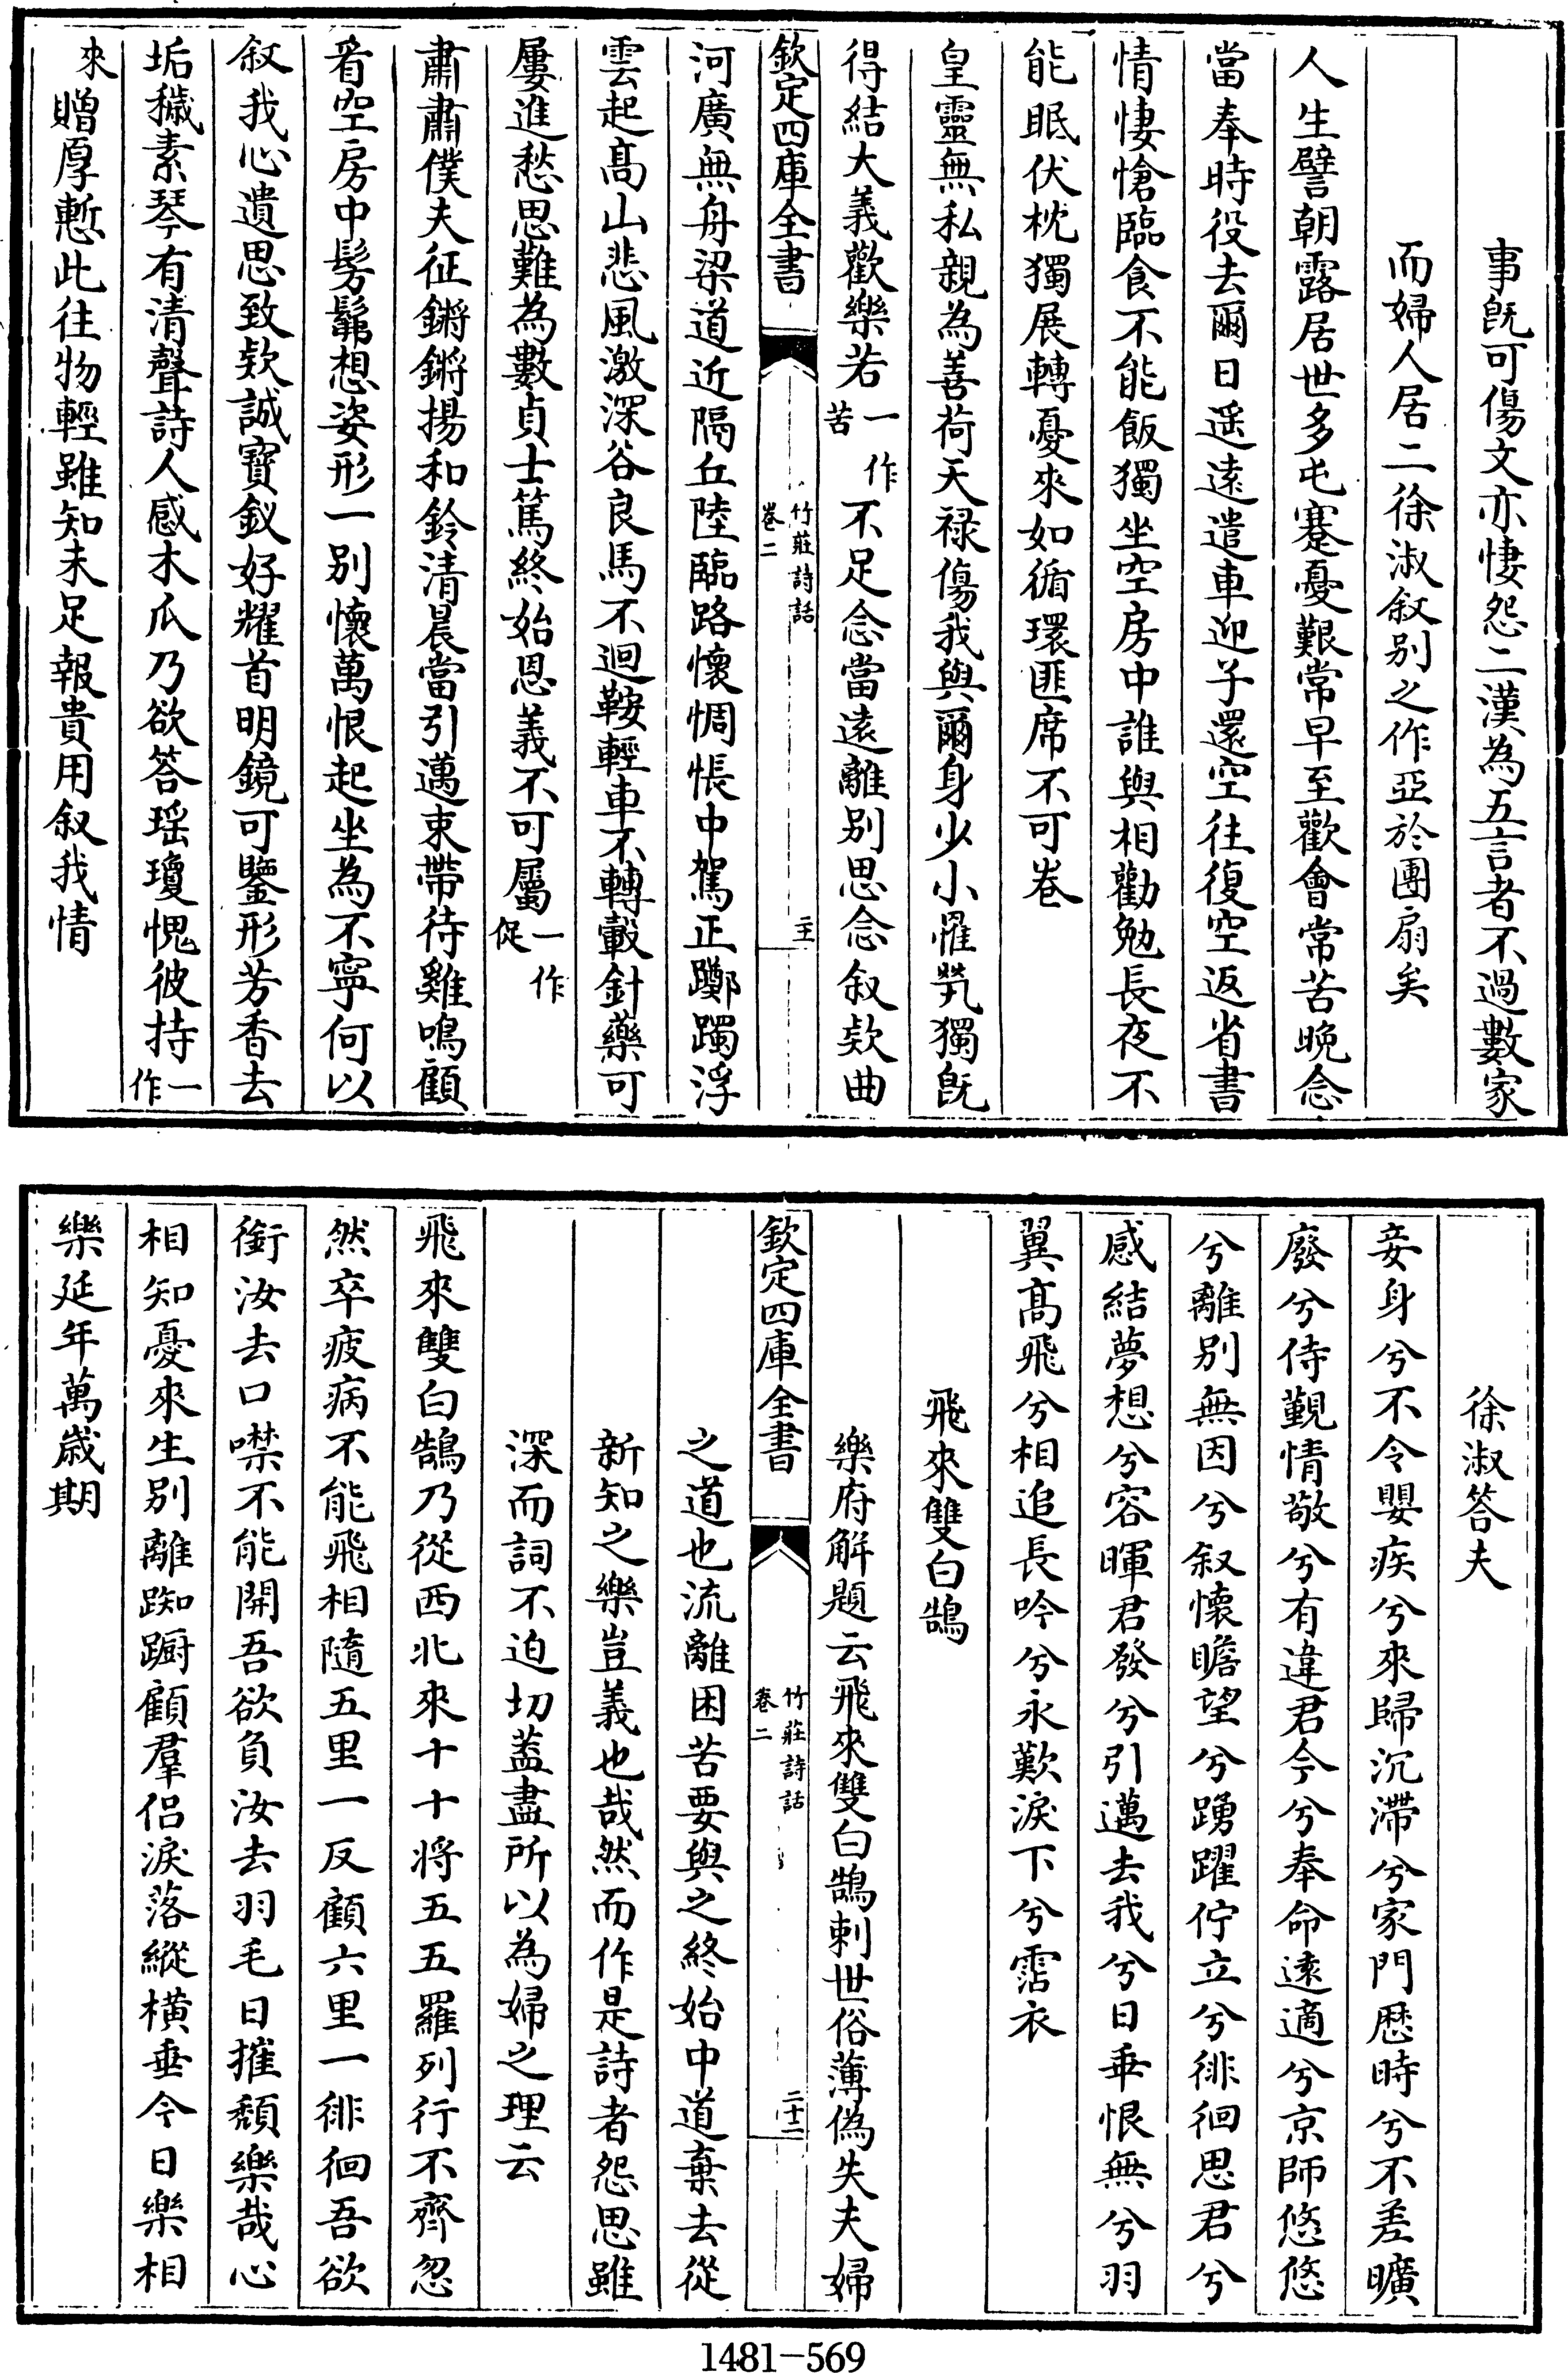 事旣可傷文亦悽怨二漢為五言者不過數家
而婦人居二徐淑叙别之作亞於團扇矣
人生譬朝露居世多屯蹇憂艱常早至歡會常苦晚念
當奉時役去爾日遥遠遣車迎子還空往復空返省書
情悽愴臨食不能飯獨坐空房中誰與相勸勉長夜不
能眠伏枕獨展轉憂來如循環匪席不可卷
皇靈無私親為善荷天禄傷我與爾身少小罹煢獨旣
得結大義歡樂若一作苦不足念當遠離别思念叙欵曲
欽定四庫全書 竹莊詩話 卷二
河廣無舟梁道近隔丘陸臨路懷惆悵中駕正躑躅浮
雲起髙山悲風激深谷良馬不迴鞍輕車不轉轂針藥可
屢進愁思難為數貞士篤終始恩義不可屬一作促
肅肅僕夫征鏘鏘揚和鈴清晨當引邁束帶待雞鳴顧
看空房中髣髴想姿形一别懷萬恨起坐為不寧何以
叙我心遺思致欵誠寳釵好耀首明鏡可鑒形芳香去
垢穢素琴有清聲詩人感木瓜乃欲答瑶瓊愧彼持一作
來贈厚慙此往物輕雖知未足報貴用叙我情
徐淑答夫
妾身兮不令嬰疾兮來歸沉滯兮家門歴時兮不差曠
廢兮侍覲情敬兮有違君今兮奉命遠適兮京師悠悠
兮離别無因兮叙懷瞻望兮踴躍佇立兮徘徊思君兮
感結夢想兮容暉君發兮引邁去我兮日乖恨無兮羽
翼髙飛兮相追長吟兮永歎淚下兮霑衣
飛來雙白鵠
樂府解題云飛來雙白鵠刺世俗薄偽失夫婦
欽定四庫全書 竹莊詩話 卷二 二十二
之道也流離困苦要與之終始中道棄去從
新知之樂豈義也哉然而作是詩者怨思雖
深而詞不迫切葢盡所以為婦之理云
飛來雙白鵠乃從西北來十十将五五羅列行不齊忽
然卒疲病不能飛相隨五里一反顧六里一徘徊吾欲
銜汝去口噤不能開吾欲負汝去羽毛日摧頽樂哉心
相知憂來生别離踟蹰顧羣侣淚落縱横垂今日樂相
樂延年萬歳期
1481-569